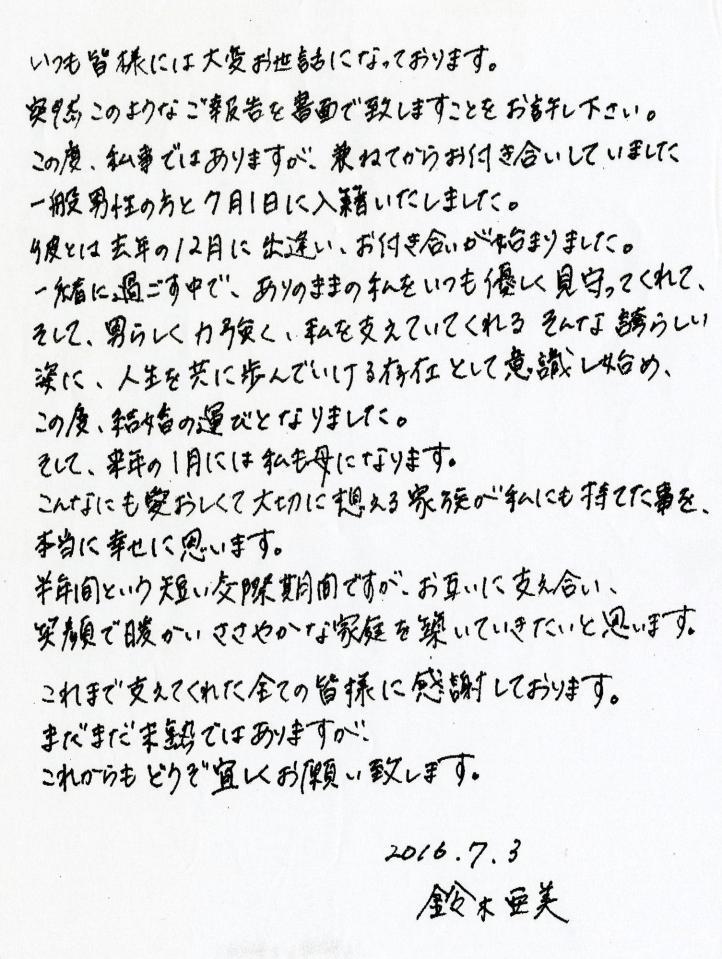 いつも皆様には大変お世話になっております。
突然このようなご報告を書面で致しますことをお許し下さい。
この度、私事ではありますが、兼ねてからお付き合いしていました
一般男性の方と7月1日に入籍いたしました。
彼とは去年の12月に出逢い、お付き合いが始まりました。
一緒に過ごす中で、ありのままの私をいつも優しく見守ってくれて、
そして、男らしく力強く、私を支えていてくれるそんな誇らしい
姿に、人生を共に歩んでいける存在として意識し始め、
この度、結婚の運びとなりました。
そして、来年の1月には私も母になります。
こんなにも愛おしくて大切に想える家族が私にも持てた事を、
本当に幸せに思います。
半年間という短い交際期間ですが、お互いに支え合い、
笑顔で暖かいささやかな家庭を築いていきたいと思います。
これまで支えてくれた全ての皆様に感謝しております。
まだまだ未熟ではありますが、
これからもどうぞ宜しくお願い致します。
2016.7.3
鈴木亜美